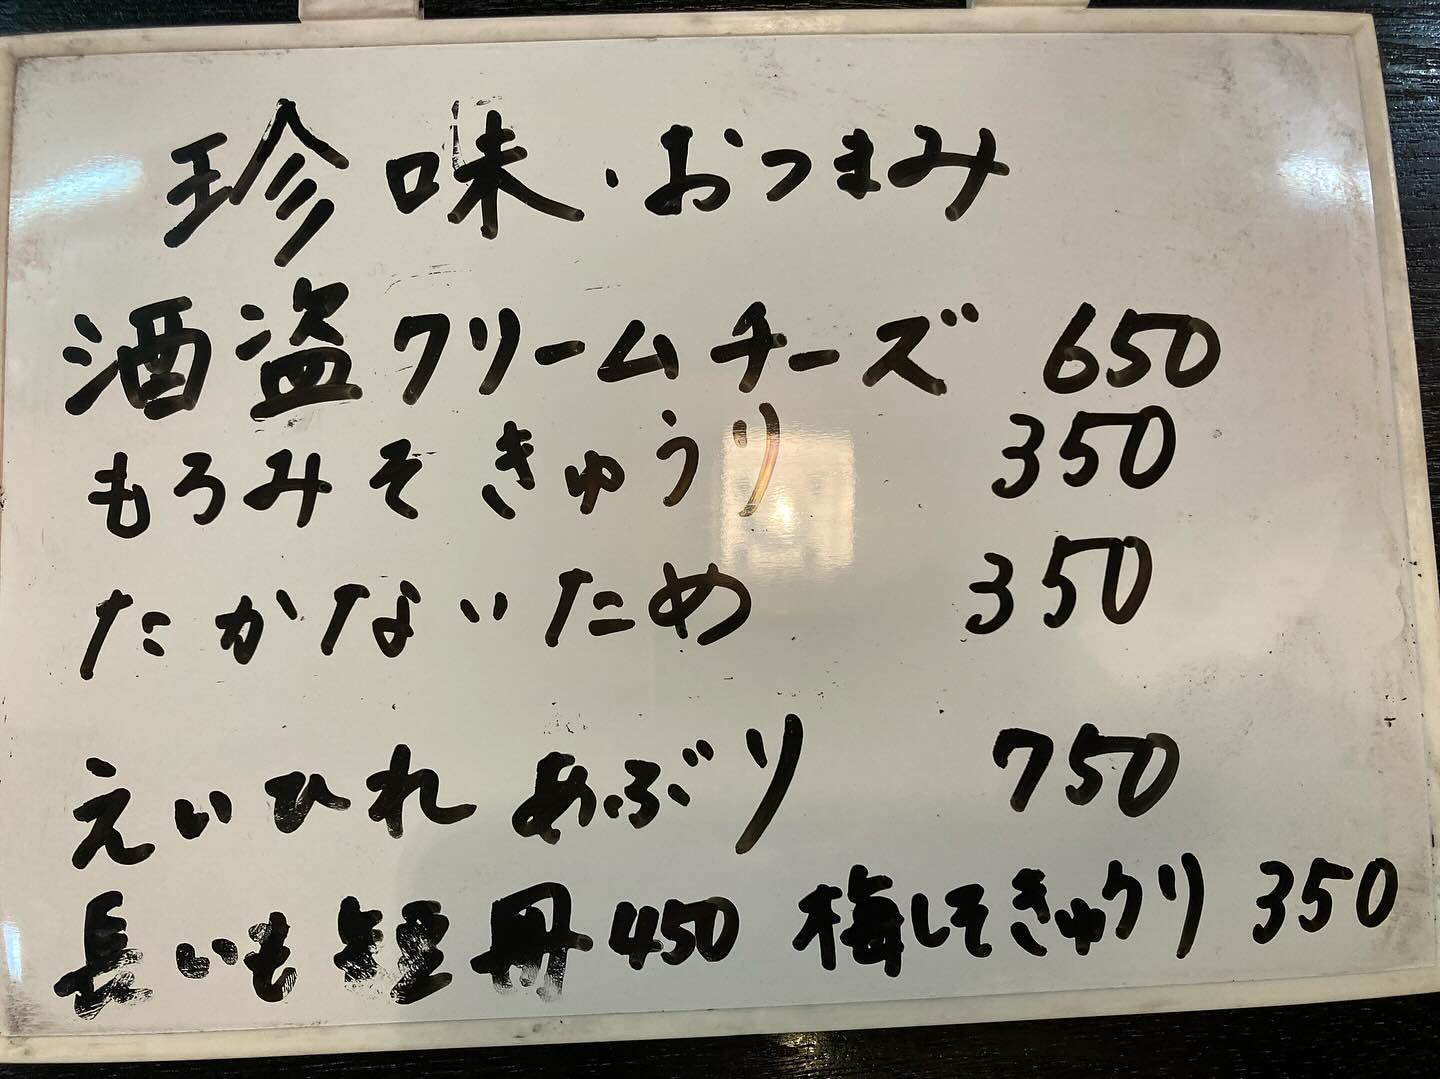 珍味・おつまみ
酒盗クリームチーズ 650
もろみそきゅうり 350
たかないため 350
えいひれあぶり 750
長いも短冊 450 梅しそきゅうり 350